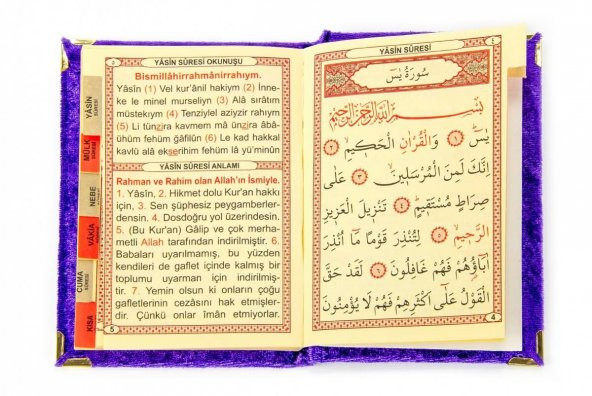 YÂSİN SÛRESİ
MÜLK SÛRESİ
NEBE SÛRESİ
VÂKIA SÛRESİ
CUMA SÛRESİ
KISA
YÂSÎN SÛRESİ OKUNUŞU
Bismillâhirrahmânirrahıym.
Yâsîn (1) Vel kur'ânil hakiym (2) İnne-
ke le minel murseliyn (3) Alâ sırâtım
müstekıym (4) Tenziylel aziyzir rahıym
(5) Li tünzira kavmem mâ ünzira âbâ-
ühüm fehüm ğâfilûn (6) Le kad hakkal
kavlü alâ ekserihim fehüm lâ yü'minûn
YÂSÎN SÛRESİ ANLAMI
Rahman ve Rahim olan Allah'ın İsmiyle.
1. Yâsîn, 2. Hikmet dolu Kur'an hakkı
için, 3. Sen şüphesiz peygamberler-
densin. 4. Dosdoğru yol üzerindesin.
5. (Bu Kur'an) Gâlip ve çok merha-
metli Allah tarafından indirilmiştir. 6.
Babaları uyarılmamış, bu yüzden
kendileri de gaflet içinde kalmış bir
toplumu uyarman için indirilmiş-
tir. 7. Yemin olsun ki onların çoğu
gafletlerinin cezasını hak etmişler-
dir. Çünkü onlar îman etmiyorlar.
5
YÂSÎN SÛRESİ
٤
سُورَةُ يٰسٓ
بِسْمِ اللّٰهِ الرَّحْمٰنِ الرَّحِيمِ
يٰسٓ ﴿١﴾ وَالْقُرْاٰنِ الْحَكِيمِ ﴿٢﴾
اِنَّكَ لَمِنَ الْمُرْسَلِينَ ﴿٣﴾ عَلٰى
صِرَاطٍ مُسْتَقِيمٍ ﴿٤﴾ تَنْزِيلَ الْعَزِيزِ
الرَّحِيمِ ﴿٥﴾ لِتُنْذِرَ قَوْمًا مَٓا اُنْذِرَ
اٰبَٓاؤُهُمْ فَهُمْ غَافِلُونَ ﴿٦﴾ لَقَدْ حَقَّ
الْقَوْلُ عَلٰٓى اَكْثَرِهِمْ فَهُمْ لَا يُؤْمِنُونَ
4